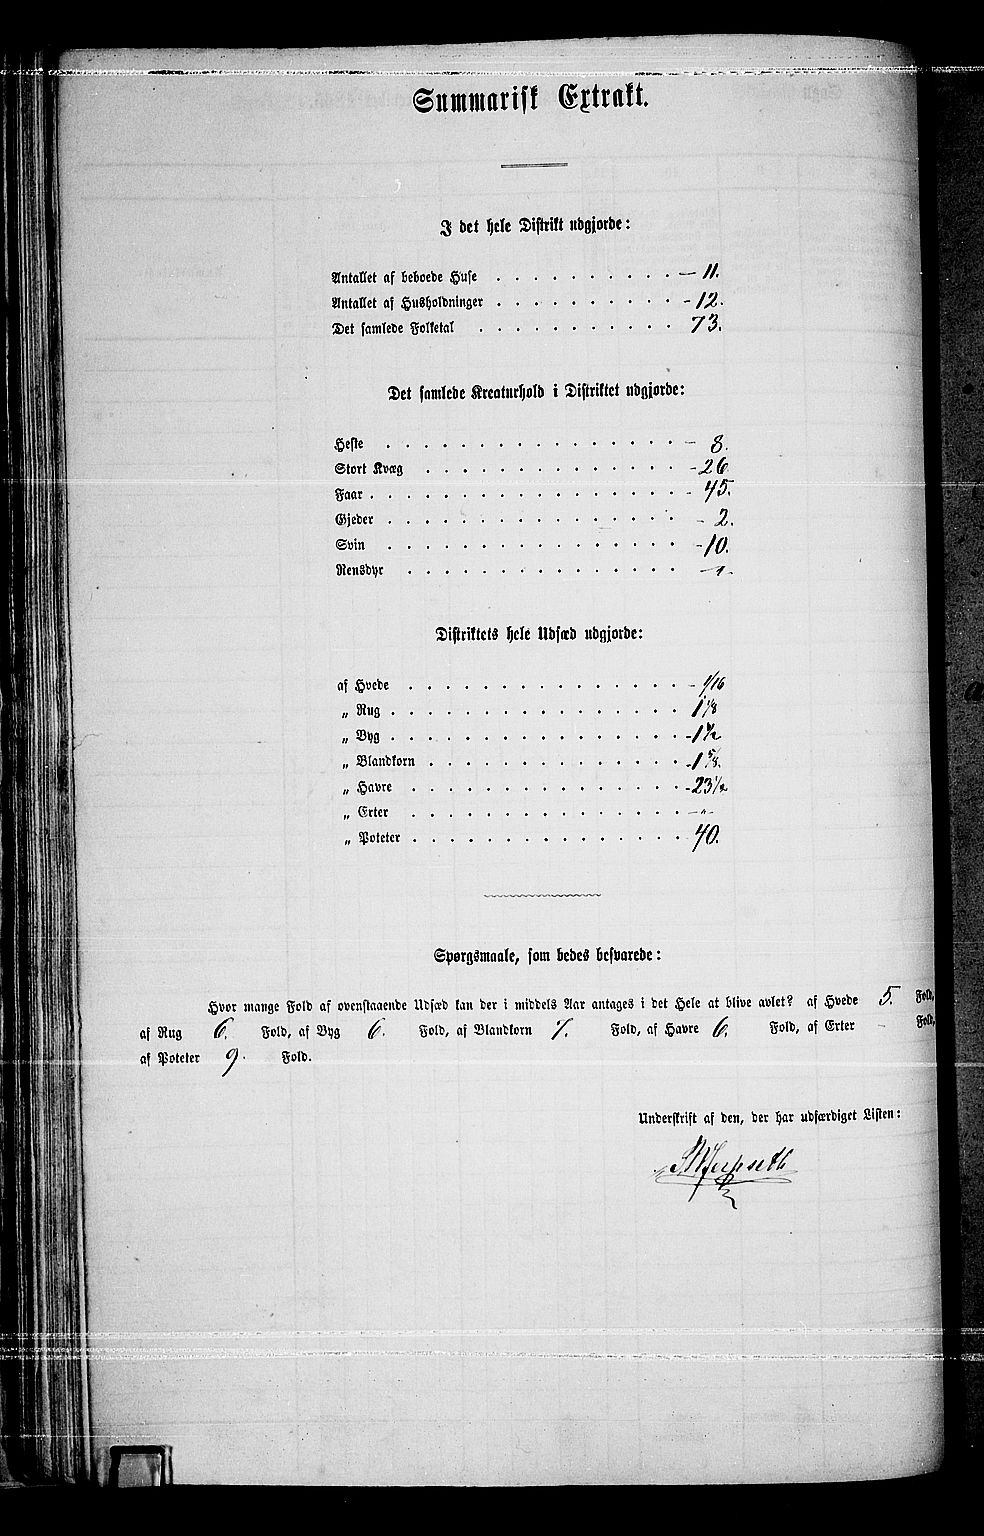 Summarisk Extrakt.
I det hele Distrikt udgjorde:
Antallet af beboede Huse . . . . . . . . . . — 11.
Antallet af Husholdninger . . . . . . . . . . - 12.
Det samlede Folketal . . . . . . . . . . . 73.
Det samlede Kreaturhold i Distriktet udgjorde:
Heste . . . . . . . . . . . . . . . — 8.
Stort Kvæg . . . . . . . . . . . . . . - 26
Faar . . . . . . . . . . . . . . . . - 45.
Gjeder . . . . . . . . . . . . . . . - 2.
Svin . . . . . . . . . . . . . . . - 10.
Rensdyr . . . . . . . . . . . . . .
Distriktets hele Udsæd udgjorde:
af Hvede . . . . . . . . . . . . . . - 1/16
„ Rug . . . . . . . . . . . . . . . 1 1/8
„ Byg . . . . . . . . . . . . . . . -1
„ Blandkorn . . . . . . . . . . . . . -1 5/8.
„ Havre . . . . . . . . . . . . . . -23 1/2
„ Erter . . . . . . . . . . . . . . — „
„ Poteter . . . . . . . . . . . . . . 40.
Spørgsmaale, som bedes besvarede:
Hvor mange Fold af ovenstaaende Udsæd kan der i middels Aar antages i det Hele at blive avlet? af Hvede 5. Fold,
af Rug 6. Fold, af Byg 6. Fold, af Blandkorn 7. Fold, af Havre 6. Fold, af Erter - Fold,
af Poteter 9. Fold.
Underskrift af den, der har udfærdiget Listen: